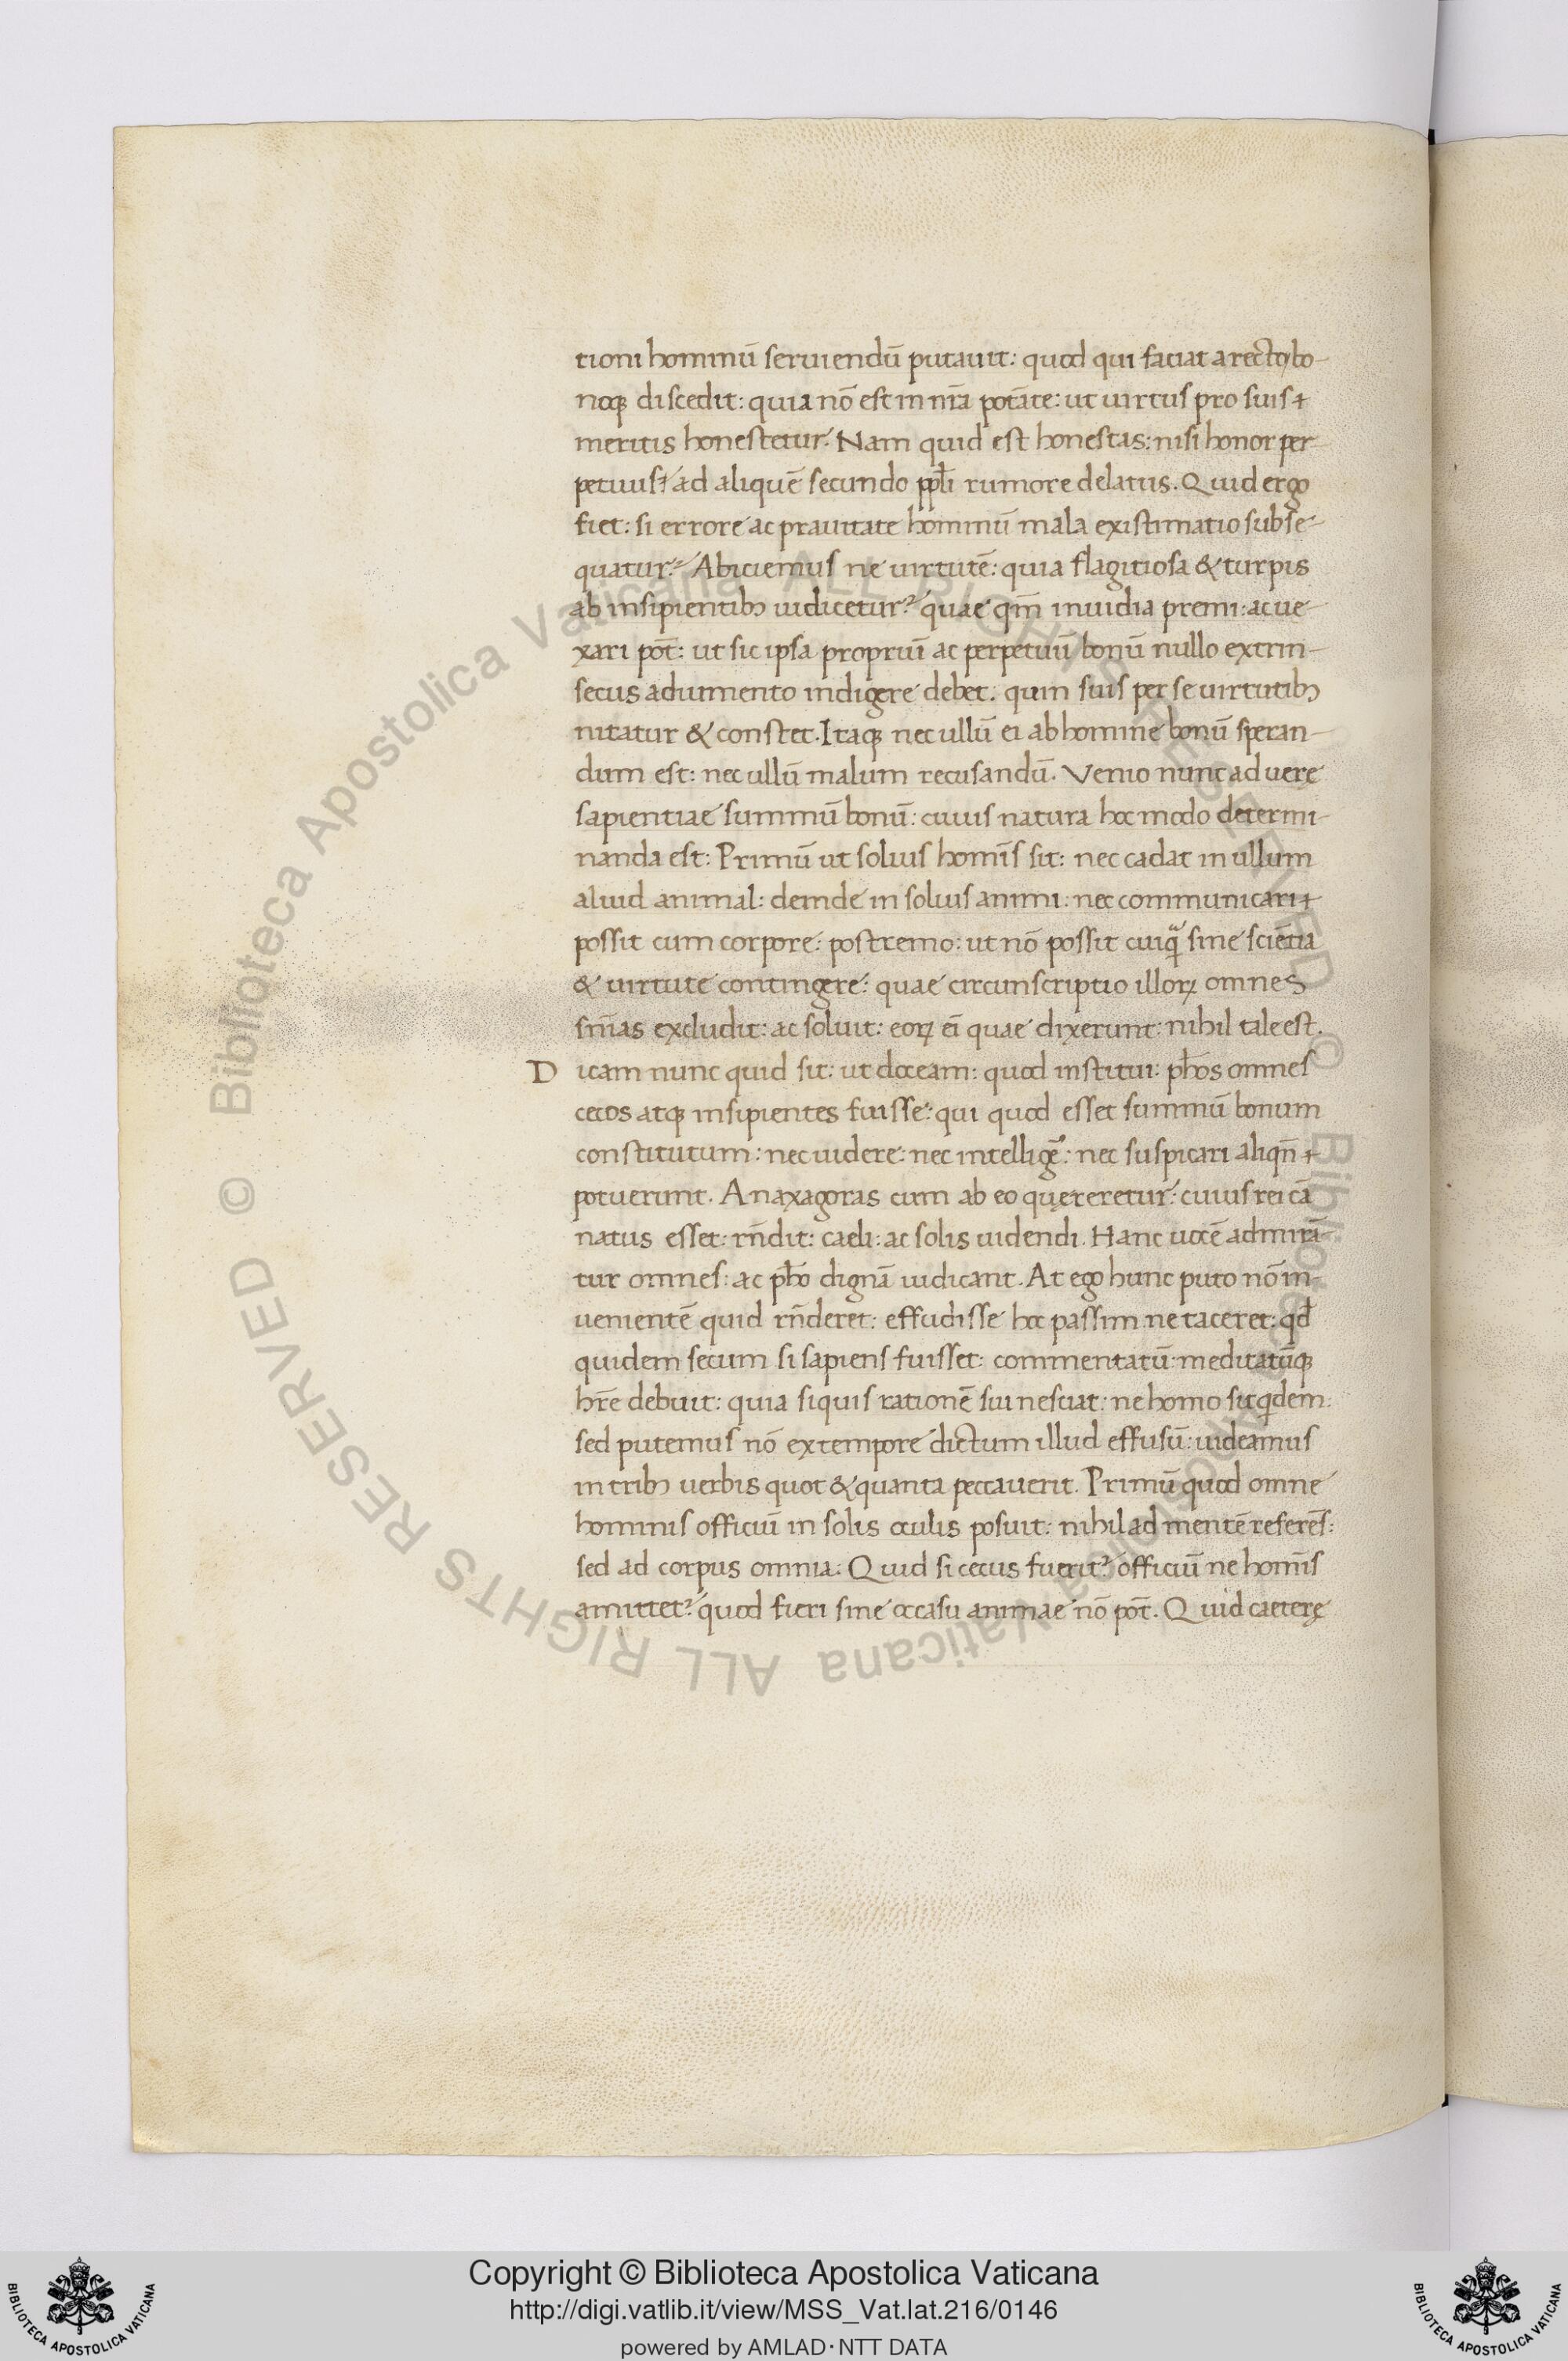 tioni hominū seruiendū putauit: quod qui faciat a recto bo-
noqꝫ discedit: quia nō est in nr̄a potāte: ut uirtus pro suis
meritis honestetur. Nam quid est honestas: nisi honor per-
petuus? ad aliquē secundo ppłi rumore delatus. Quid ergo
fiet: si errore ac prauitate hominū mala existimatio subse-
quatur? Abiciemus ne uirtutē: quia flagitiosa & turpis
ab insipientibꝫ iudicetur? quae qm̄ inuidia premi: ac ue-
xari pōt: ut sic ipsa propriū ac perpetuū bonū nullo extrin-
secus adiumento indigere debet: quin suis per se uirtutibꝫ
nitatur & constet. Itaqꝫ nec ullū ei ab homine bonū speran-
dum est: nec ullū malum recusandū. Venio nunc ad uere
sapientiae summū bonū: cuius natura hoc modo determi-
nanda est: Primū ut solius homīs sit: nec cadat in ullum
aliud animal: deinde in solius animi: nec communicari
possit cum corpore: postremo: ut nō possit cuiqᷓ sine sciētia
& uirtute contingere: quae circunscriptio illoꝝ omnes
snīas excludit: ac soluit: eoꝝ eī quae dixerunt: nihil tale est.
Dicam nunc quid sit: ut doceam: quod institui: ph̄os omnes
cecos atqꝫ insipientes fuisse: qui quod esset summū bonum
constitutum: nec uidere: nec intelligē: nec suspicari aliqn̄
potuerunt. Anaxagoras cum ab eo quęreretur: cuius rei cā
natus esset: rn̄dit: caeli: ac solis uidendi. Hanc uocē admirā-
tur omnes: ac ph̄o dignā iudicant. At ego hunc puto nō in-
uenientē quid rn̄deret: effudisse hoc passim ne taceret: qđ
quidem secum si sapiens fuisset: commentatū: meditatūqꝫ
hr̄e debuit: quia siquis rationē sui nesciat: ne homo sit qͥdem:
sed putemus nō ex tempore dictum illud effusū: uideamus
in tribꝫ uerbis quot & quanta peccauerit. Primū quod omne
hominis officiū in solis oculis posuit: nihil ad mentē referēs:
sed ad corpus omnia: Quid si cecus fuerit? officiū ne homīs
amittet? quod fieri sine occasu animae nō pōt. Quid caeterę
Copyright © Biblioteca Apostolica Vaticana
http://digi.vatlib.it/view/MSS_Vat.lat.216/0146
powered by AMLAD·NTT DATA
BIBLIOTECA APOSTOLICA VATICANA
BIBLIOTECA APOSTOLICA VATICANA
© Biblioteca Apostolica Vaticana ALL RIGHTS RESERVED © Biblioteca Apostolica Vaticana ALL RIGHTS RESERVED